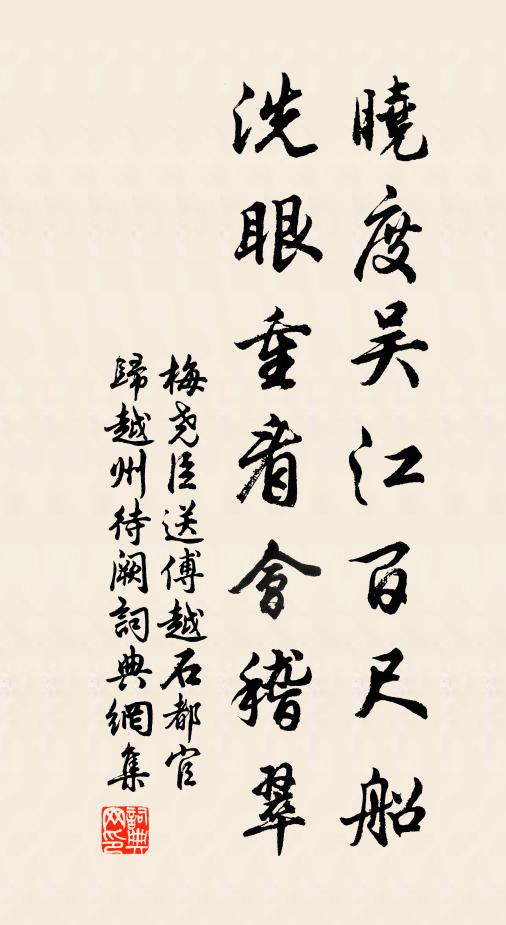 曉度吳江百尺船
洗眼重看會稽翠
梅堯臣送傅越石都官
歸越州待闕詞典網集
詞典網印